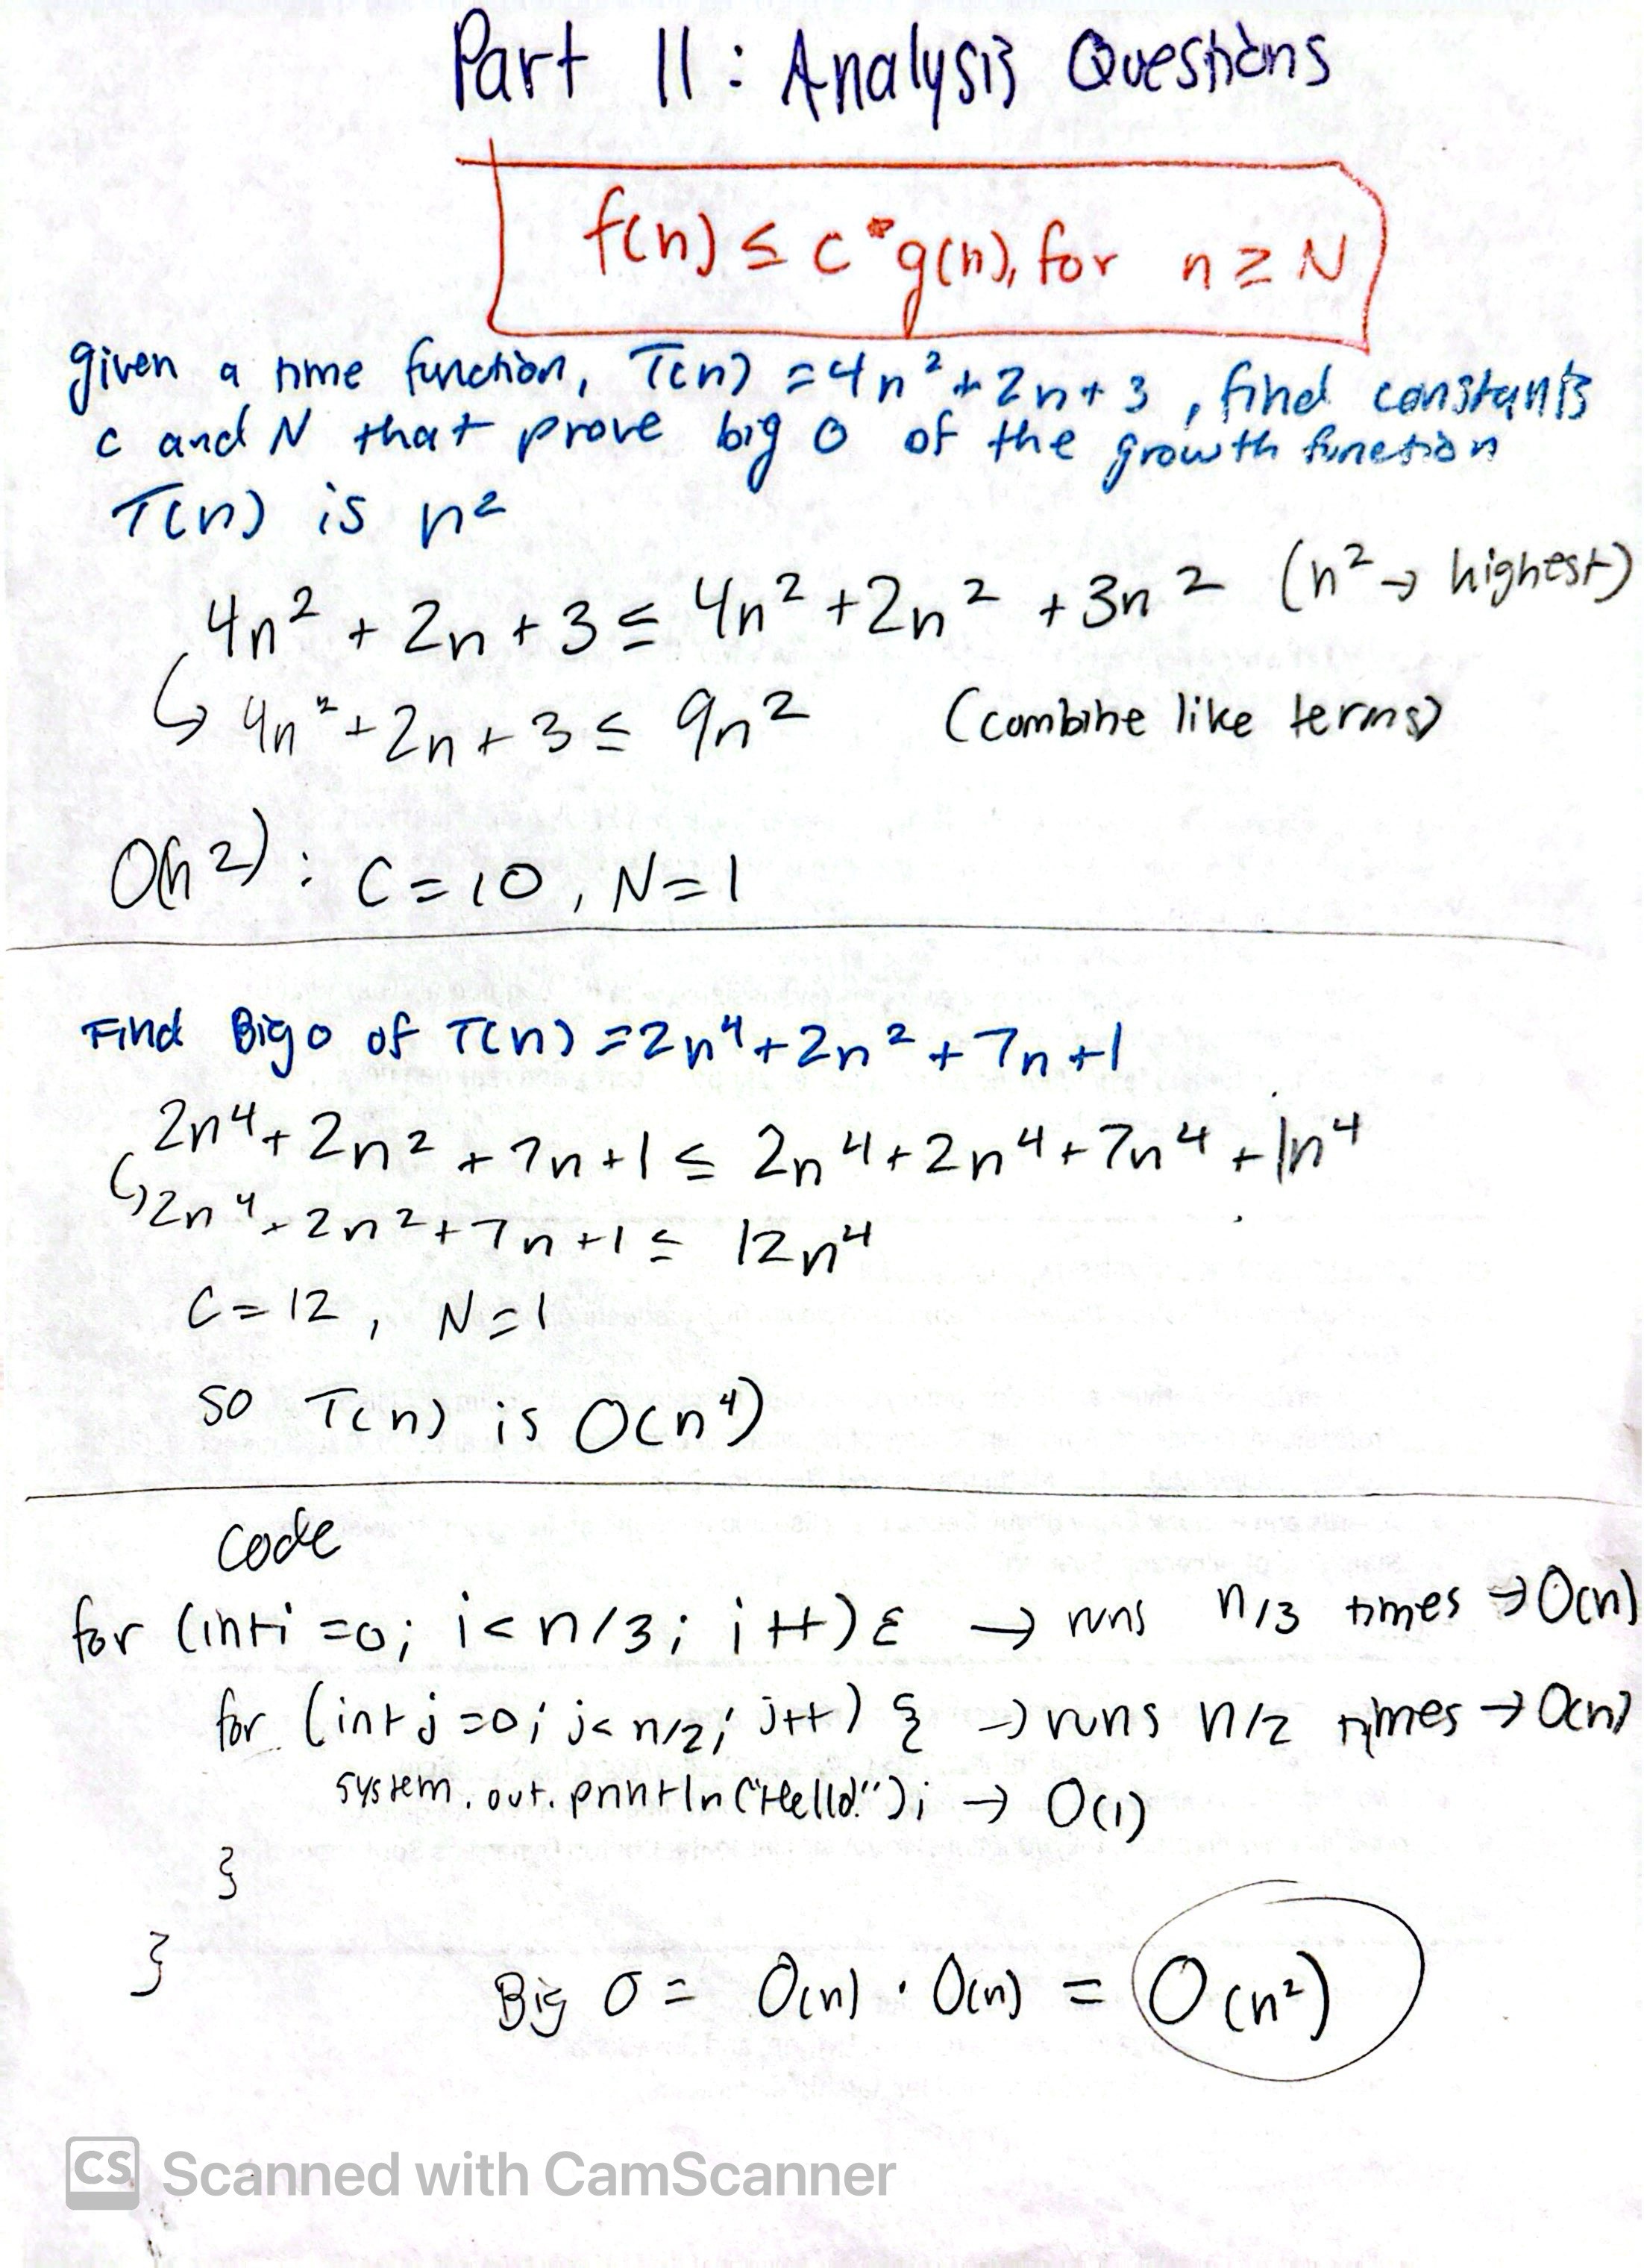 Part II: Analysis Questions
f(n) ≤ c*g(n), for n ≥ N
given a time function, T(n) = 4n² + 2n + 3, find constants
c and N that prove big O of the growth function
T(n) is n²
4n² + 2n + 3 ≤ 4n² + 2n² + 3n² (n² → highest)
↳ 4n² + 2n + 3 ≤ 9n² (combine like terms)
O(n²): C = 10, N = 1
Find Big O of T(n) = 2n⁴ + 2n² + 7n + 1
2n⁴ + 2n² + 7n + 1 ≤ 2n⁴ + 2n⁴ + 7n⁴ + 1n⁴
↳ 2n⁴ + 2n² + 7n + 1 ≤ 12n⁴
C = 12, N = 1
so T(n) is O(n⁴)
Code
for (int i = 0; i < n/3; i++) { → runs n/3 times → O(n)
for (int j = 0; j < n/2; j++) { → runs n/2 times → O(n)
system.out.println("Hello!"); → O(1)
}
}
Big O = O(n) · O(n) = O(n²)
CS Scanned with CamScanner